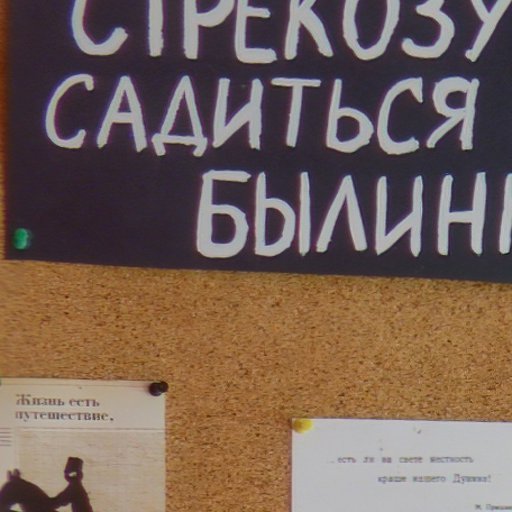 СТРЕКОЗУ
САДИТЬСЯ
БЫЛИН
Жизнь есть
путешествие.
есть ли на свете местность
краше нашего Дунина!